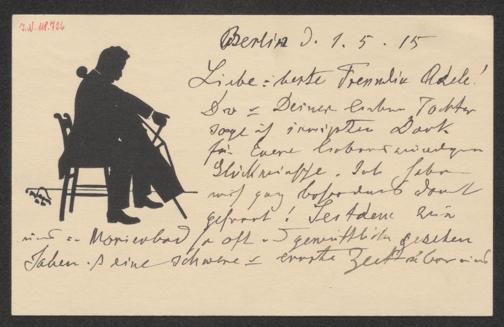 J.N. 118.726
Berlin d. 1.5.15
Liebe, beste Freundin Adele!
Dir u Deiner lieben Tochter
sage ich innigsten Dank
für Euere liebenswürdigen
Glückwünsche. Ich habe
mich ganz besonders damit
gefreut! Seitdem wir
uns in Marienbad so oft u gemütlich gesehen
haben, eine schwere u ernste Zeit über uns